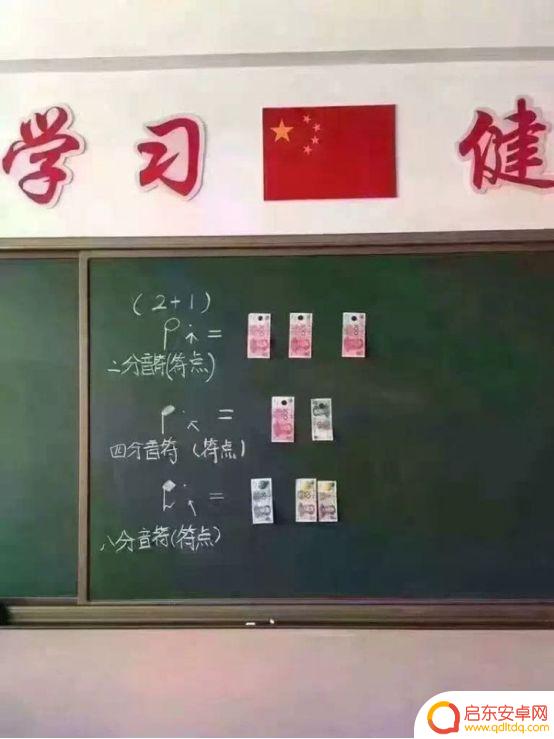 学习 健
(2+1)
=
二分音符(符点)
=
四分音符 (符点)
=
八分音符(符点)
启东安卓网
www.qdltdq.com